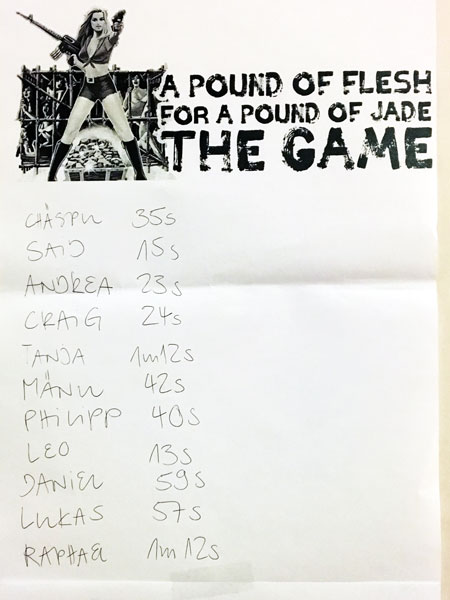 A POUND OF FLESH
FOR A POUND OF JADE
THE GAME
CHÄSPU 35s
SAID 15s
ANDREA 23s
CRAIG 24s
TANJA 1m12s
MÄNU 42s
PHILIPP 40s
LEO 13s
DANIEL 59s
LUKAS 57s
RAPHAEL 1m 12s